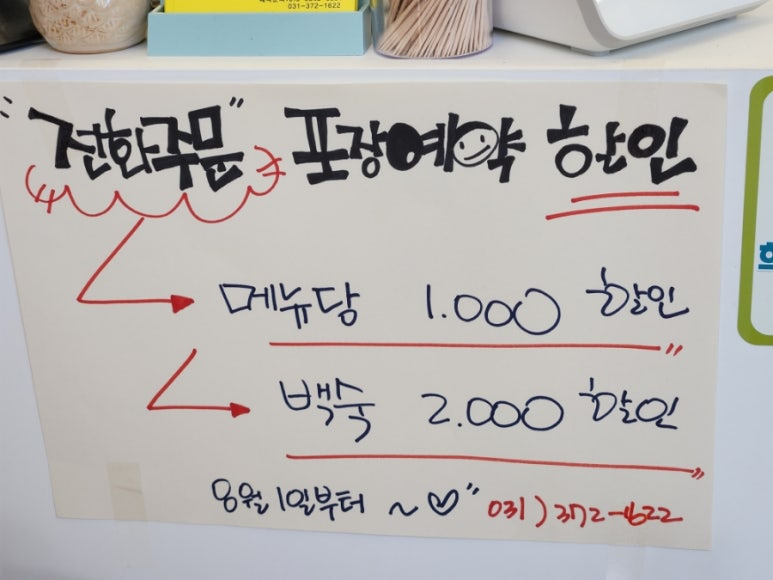 031-372-1622
"전화주문" 포장예약 한인
메뉴당 1.000 할인
백숙 2.000 할인
8월 1일부터 ~♡" 031)372-1622